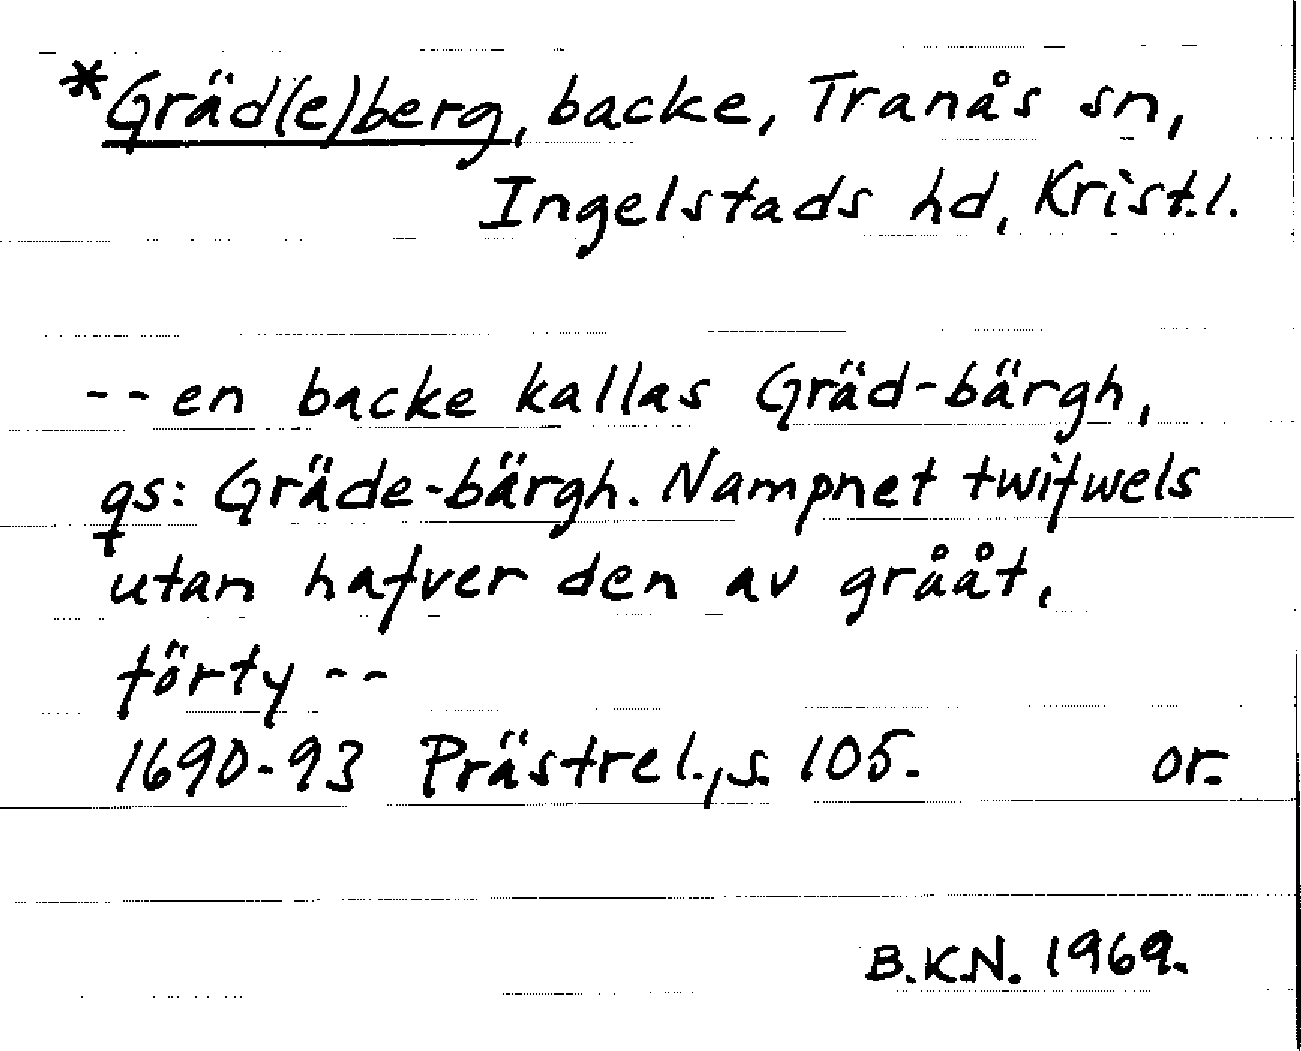 *Gräd(e)berg, backe, Tranås sn,
Ingelstads hd, Krist.l.
--en backe kallas Gräd-bärgh,
qs: Gräde-bärgh. Nampnet twifwels
utan hafver den av grååt,
förty --
1690-93 Prästrel., s. 105. or.
B.K.N. 1969.